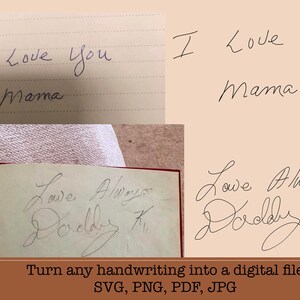 Love You
Mama
I Love
Mama
Love Always
Daddy
Love Al
Daddy
Turn any handwriting into a digital file
SVG, PNG, PDF, JPG